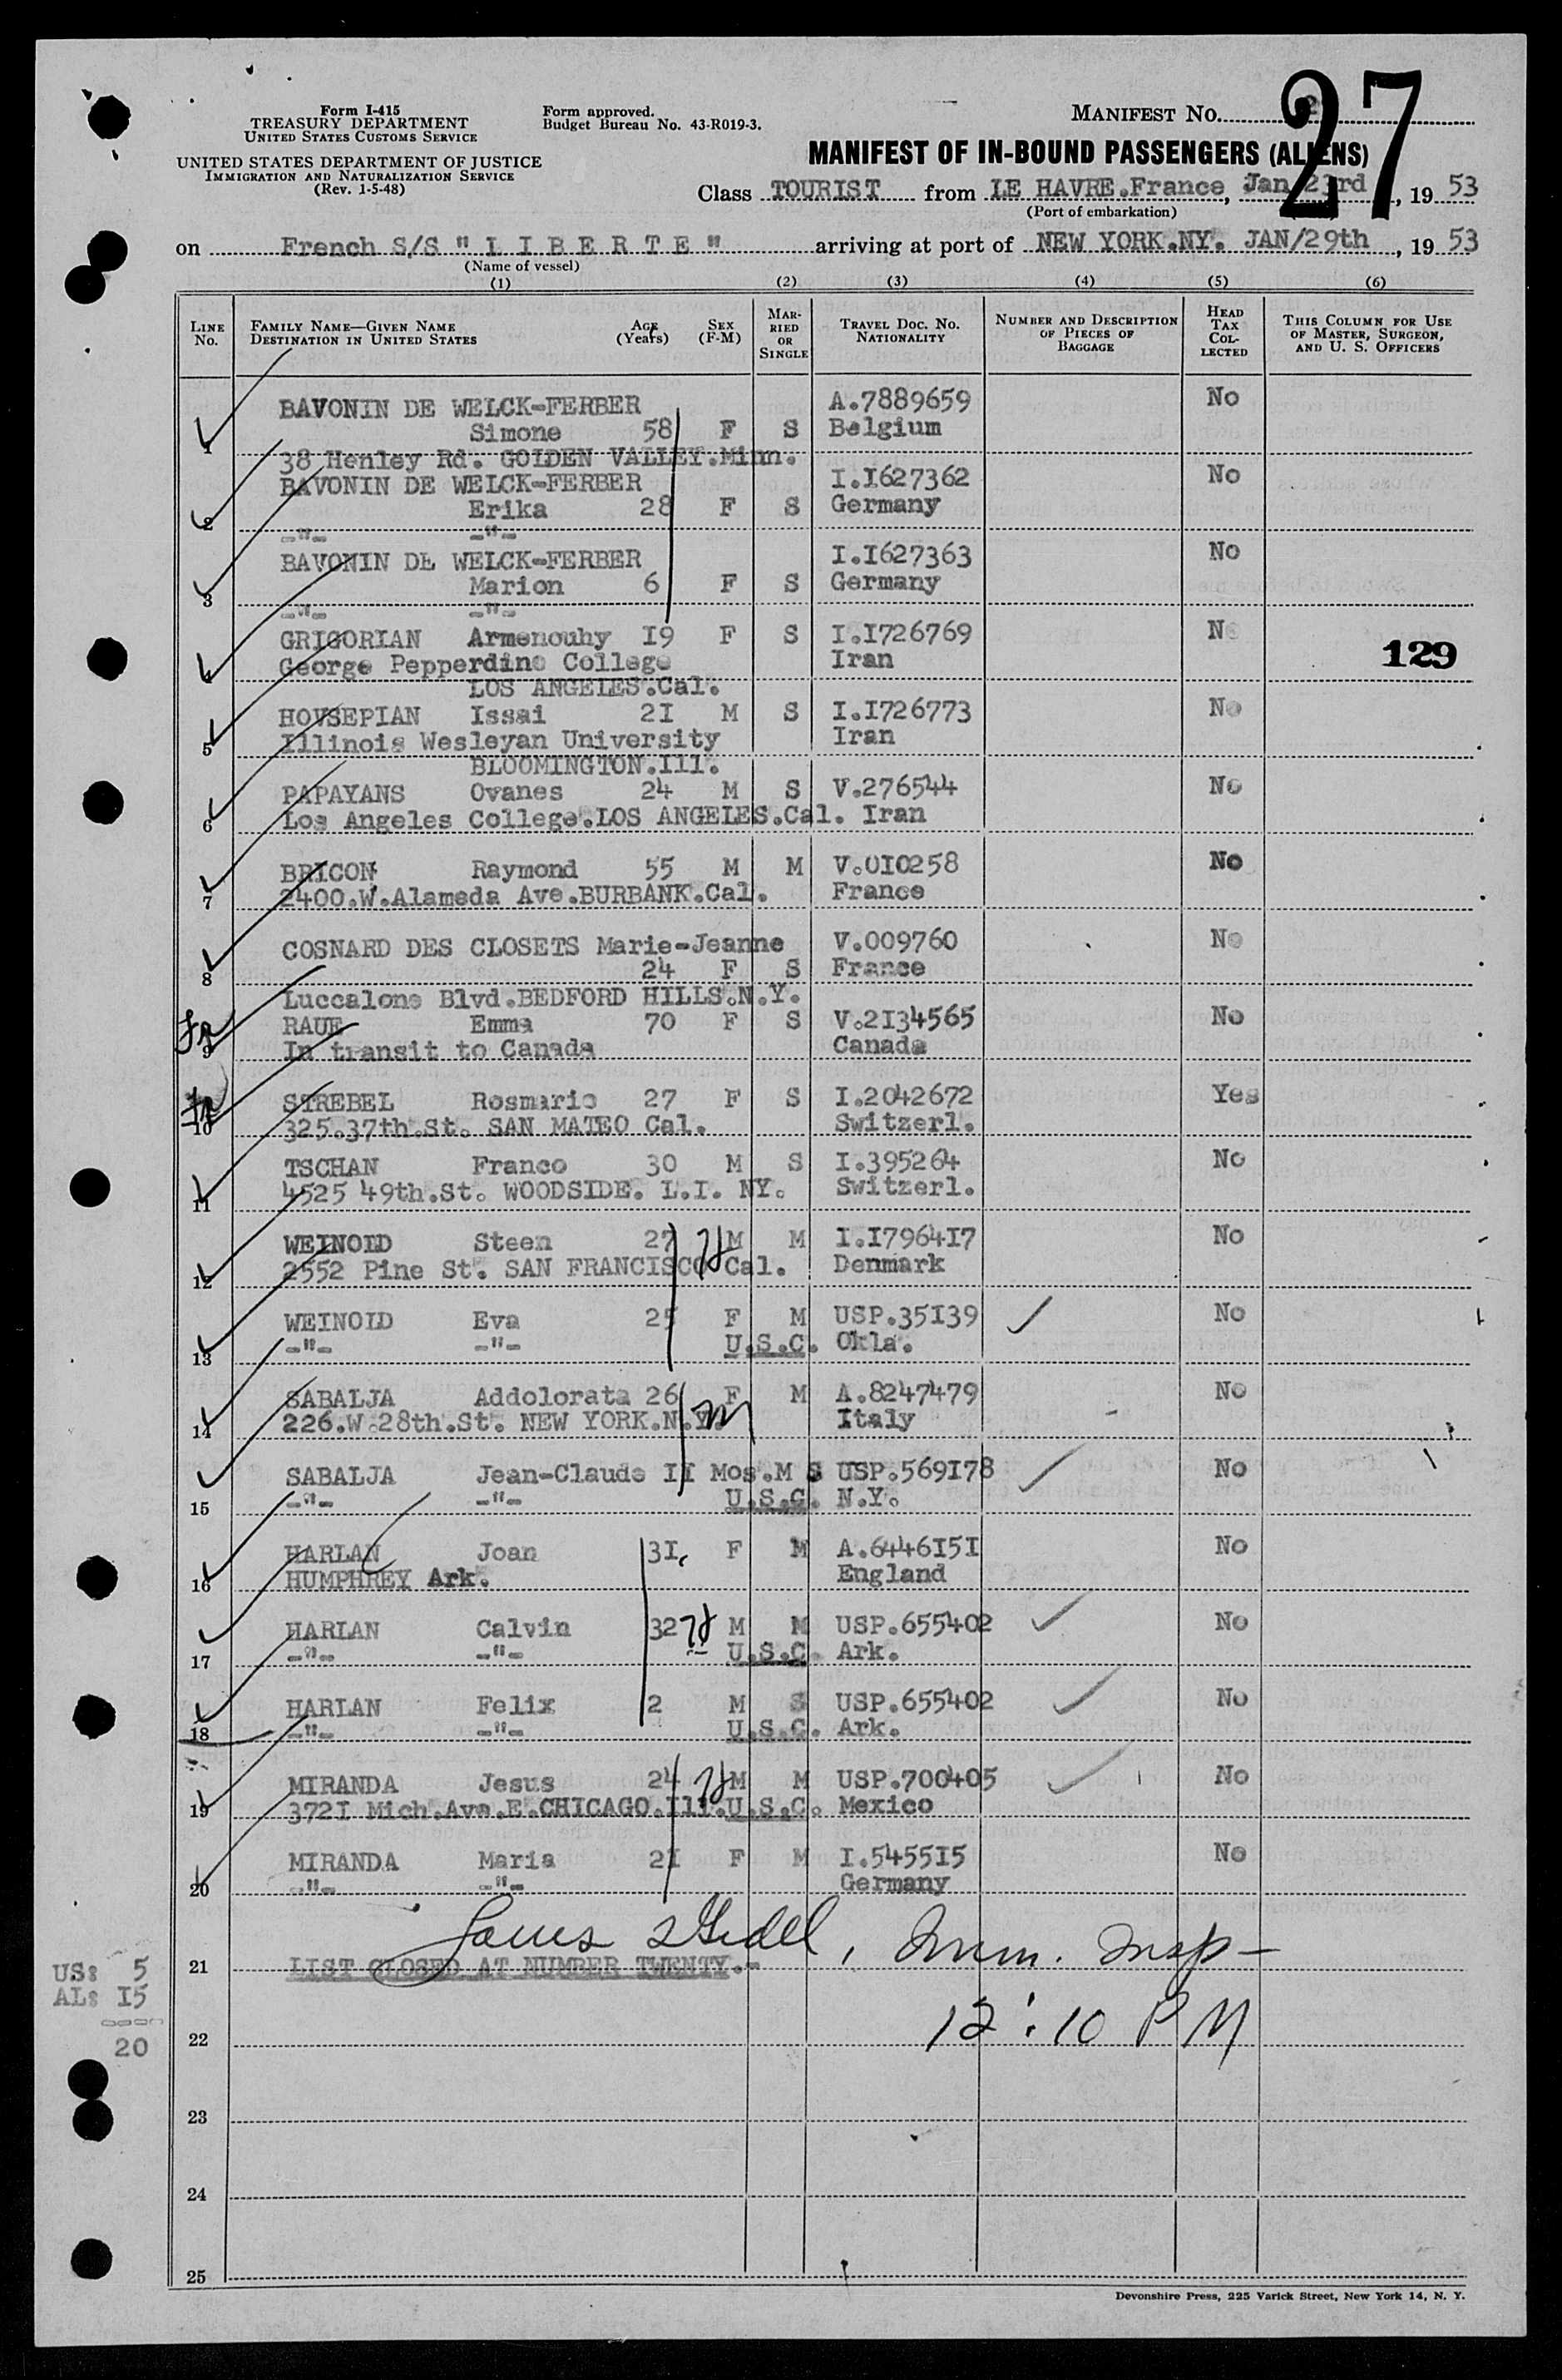 Form I-415
TREASURY DEPARTMENT
UNITED STATES CUSTOMS SERVICE
UNITED STATES DEPARTMENT OF JUSTICE
IMMIGRATION AND NATURALIZATION SERVICE
(Rev. 1-5-48)
Form approved.
Budget Bureau No. 43-R019-3.
MANIFEST NO. 27
MANIFEST OF IN-BOUND PASSENGERS (ALIENS)
Class TOURIST from LE HAVRE.France, Jan 23rd, 19 53
(Port of embarkation)
on French S/S "L I B E R T E" arriving at port of NEW YORK.NY. JAN/29th, 19 53
(Name of vessel)
(1) (2) (3) (4) (5) (6)
LINE NO.
FAMILY NAME—GIVEN NAME
DESTINATION IN UNITED STATES
AGE (Years)
SEX (F-M)
MARRIED OR SINGLE
TRAVEL DOC. NO.
NATIONALITY
NUMBER AND DESCRIPTION OF PIECES OF BAGGAGE
HEAD TAX COLLECTED
THIS COLUMN FOR USE OF MASTER, SURGEON, AND U. S. OFFICERS
BAVONIN DE WELCK-FERBER A.7889659 No
1 Simone 58 F S Belgium
38 Henley Rd. GOLDEN VALLEY.Minn.
BAVONIN DE WELCK-FERBER I.I627362 No
2 Erika 28 F S Germany
-"- -"-
BAVONIN DE WELCK-FERBER I.I627363 No
3 Marion 6 F S Germany
-"- -"-
GRIGORIAN Armenouhy I9 F S I.I726769 No
4 George Pepperdine College Iran 129
LOS ANGELES.Cal.
HOVSEPIAN Issai 2I M S I.I726773 No
5 Illinois Wesleyan University Iran
BLOOMINGTON.Ill.
PAPAYANS Ovanes 24 M S V.276544 No
6 Los Angeles College.LOS ANGELES.Cal. Iran
BRICON Raymond 55 M M V.0I0258 No
7 2400.W.Alameda Ave.BURBANK.Cal. France
COSNARD DES CLOSETS Marie-Jeanne V.009760 No
8 24 F S France
Luccalone Blvd.BEDFORD HILLS.N.Y.
RAUE Emma 70 F S V.2I34565 No
9 In transit to Canada Canada
STREBEL Rosmarie 27 F S I.2042672 Yes
10 325.37th.St. SAN MATEO Cal. Switzerl.
TSCHAN Franco 30 M S I.395264 No
11 4525 49th.St. WOODSIDE. L.I. NY. Switzerl.
WEINOLD Steen 27 M M I.I7964I7 No
12 2552 Pine St. SAN FRANCISCO Cal. Denmark
WEINOLD Eva 25 F M USP.35I39 No
13 -"- -"- U.S.C. Okla.
SABALJA Addolorata 26 F M A.8247479 No
14 226.W.28th.St. NEW YORK.N.Y. Italy
SABALJA Jean-Claude II Mos.M S USP.569I78 No
15 -"- -"- U.S.C. N.Y.
HARLAN Joan 3I F M A.6446I5I No
16 HUMPHREY Ark. England
HARLAN Calvin 32 M M USP.655402 No
17 -"- -"- U.S.C. Ark.
HARLAN Felix 2 M S USP.655402 No
18 -"- -"- U.S.C. Ark.
MIRANDA Jesus 24 M M USP.700405 No
19 372I Mich.Ave.E.CHICAGO.Ill.U.S.C. Mexico
MIRANDA Maria 2I F M I.5455I5 No
20 -"- -"- Germany
Imm. Insp-
21 LIST CLOSED AT NUMBER TWENTY.-
US: 5
AL: I5
20
12:10 PM
22
23
24
25
Devonshire Press, 225 Varick Street, New York 14, N. Y.